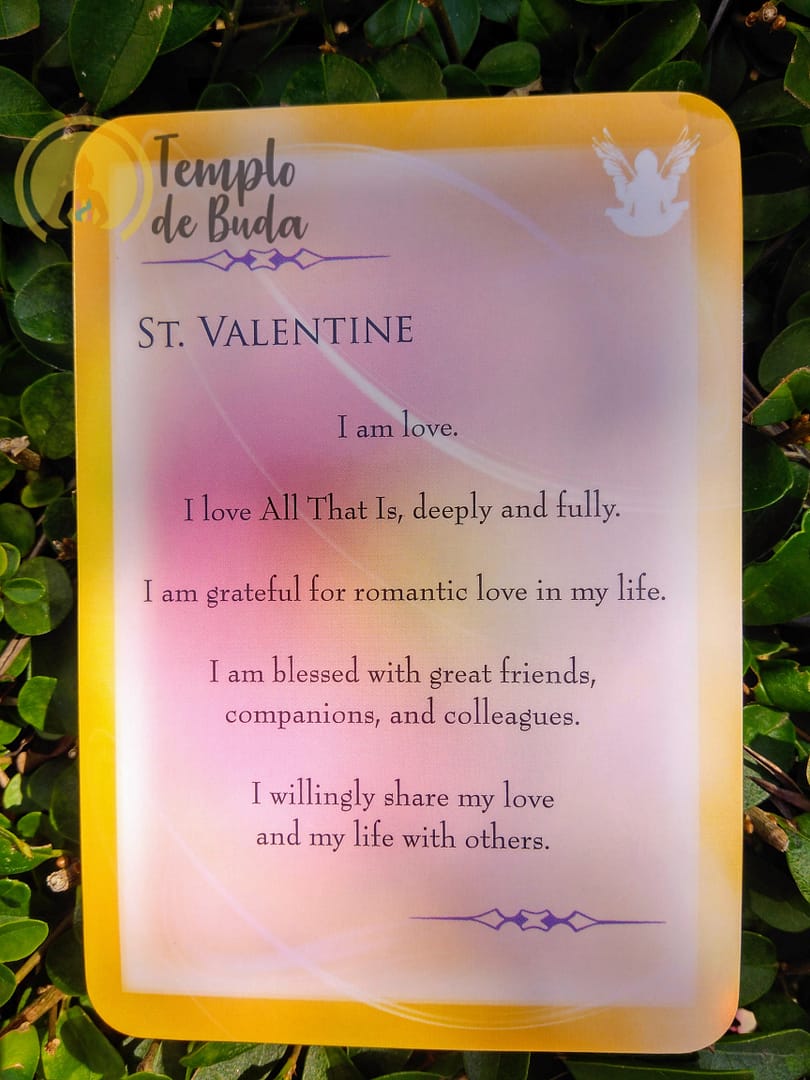 Templo
de Buda
St. Valentine
I am love.
I love All That Is, deeply and fully.
I am grateful for romantic love in my life.
I am blessed with great friends,
companions, and colleagues.
I willingly share my love
and my life with others.